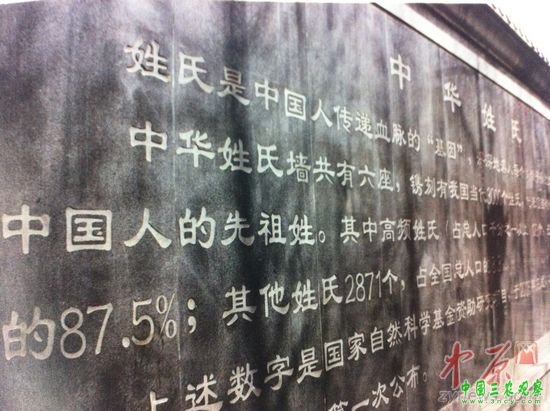 中华姓氏
姓氏是中国人传递血脉的“基因”，
中华姓氏墙共有六座，镌刻有我国当
中国人的先祖姓。其中高频姓氏（占总人口
的87.5%；其他姓氏2871个，占全国总人口的
上述数字是国家自然科学基金赞助研究
第一次公布。
中原
中国三农观察
www.3ncy.com